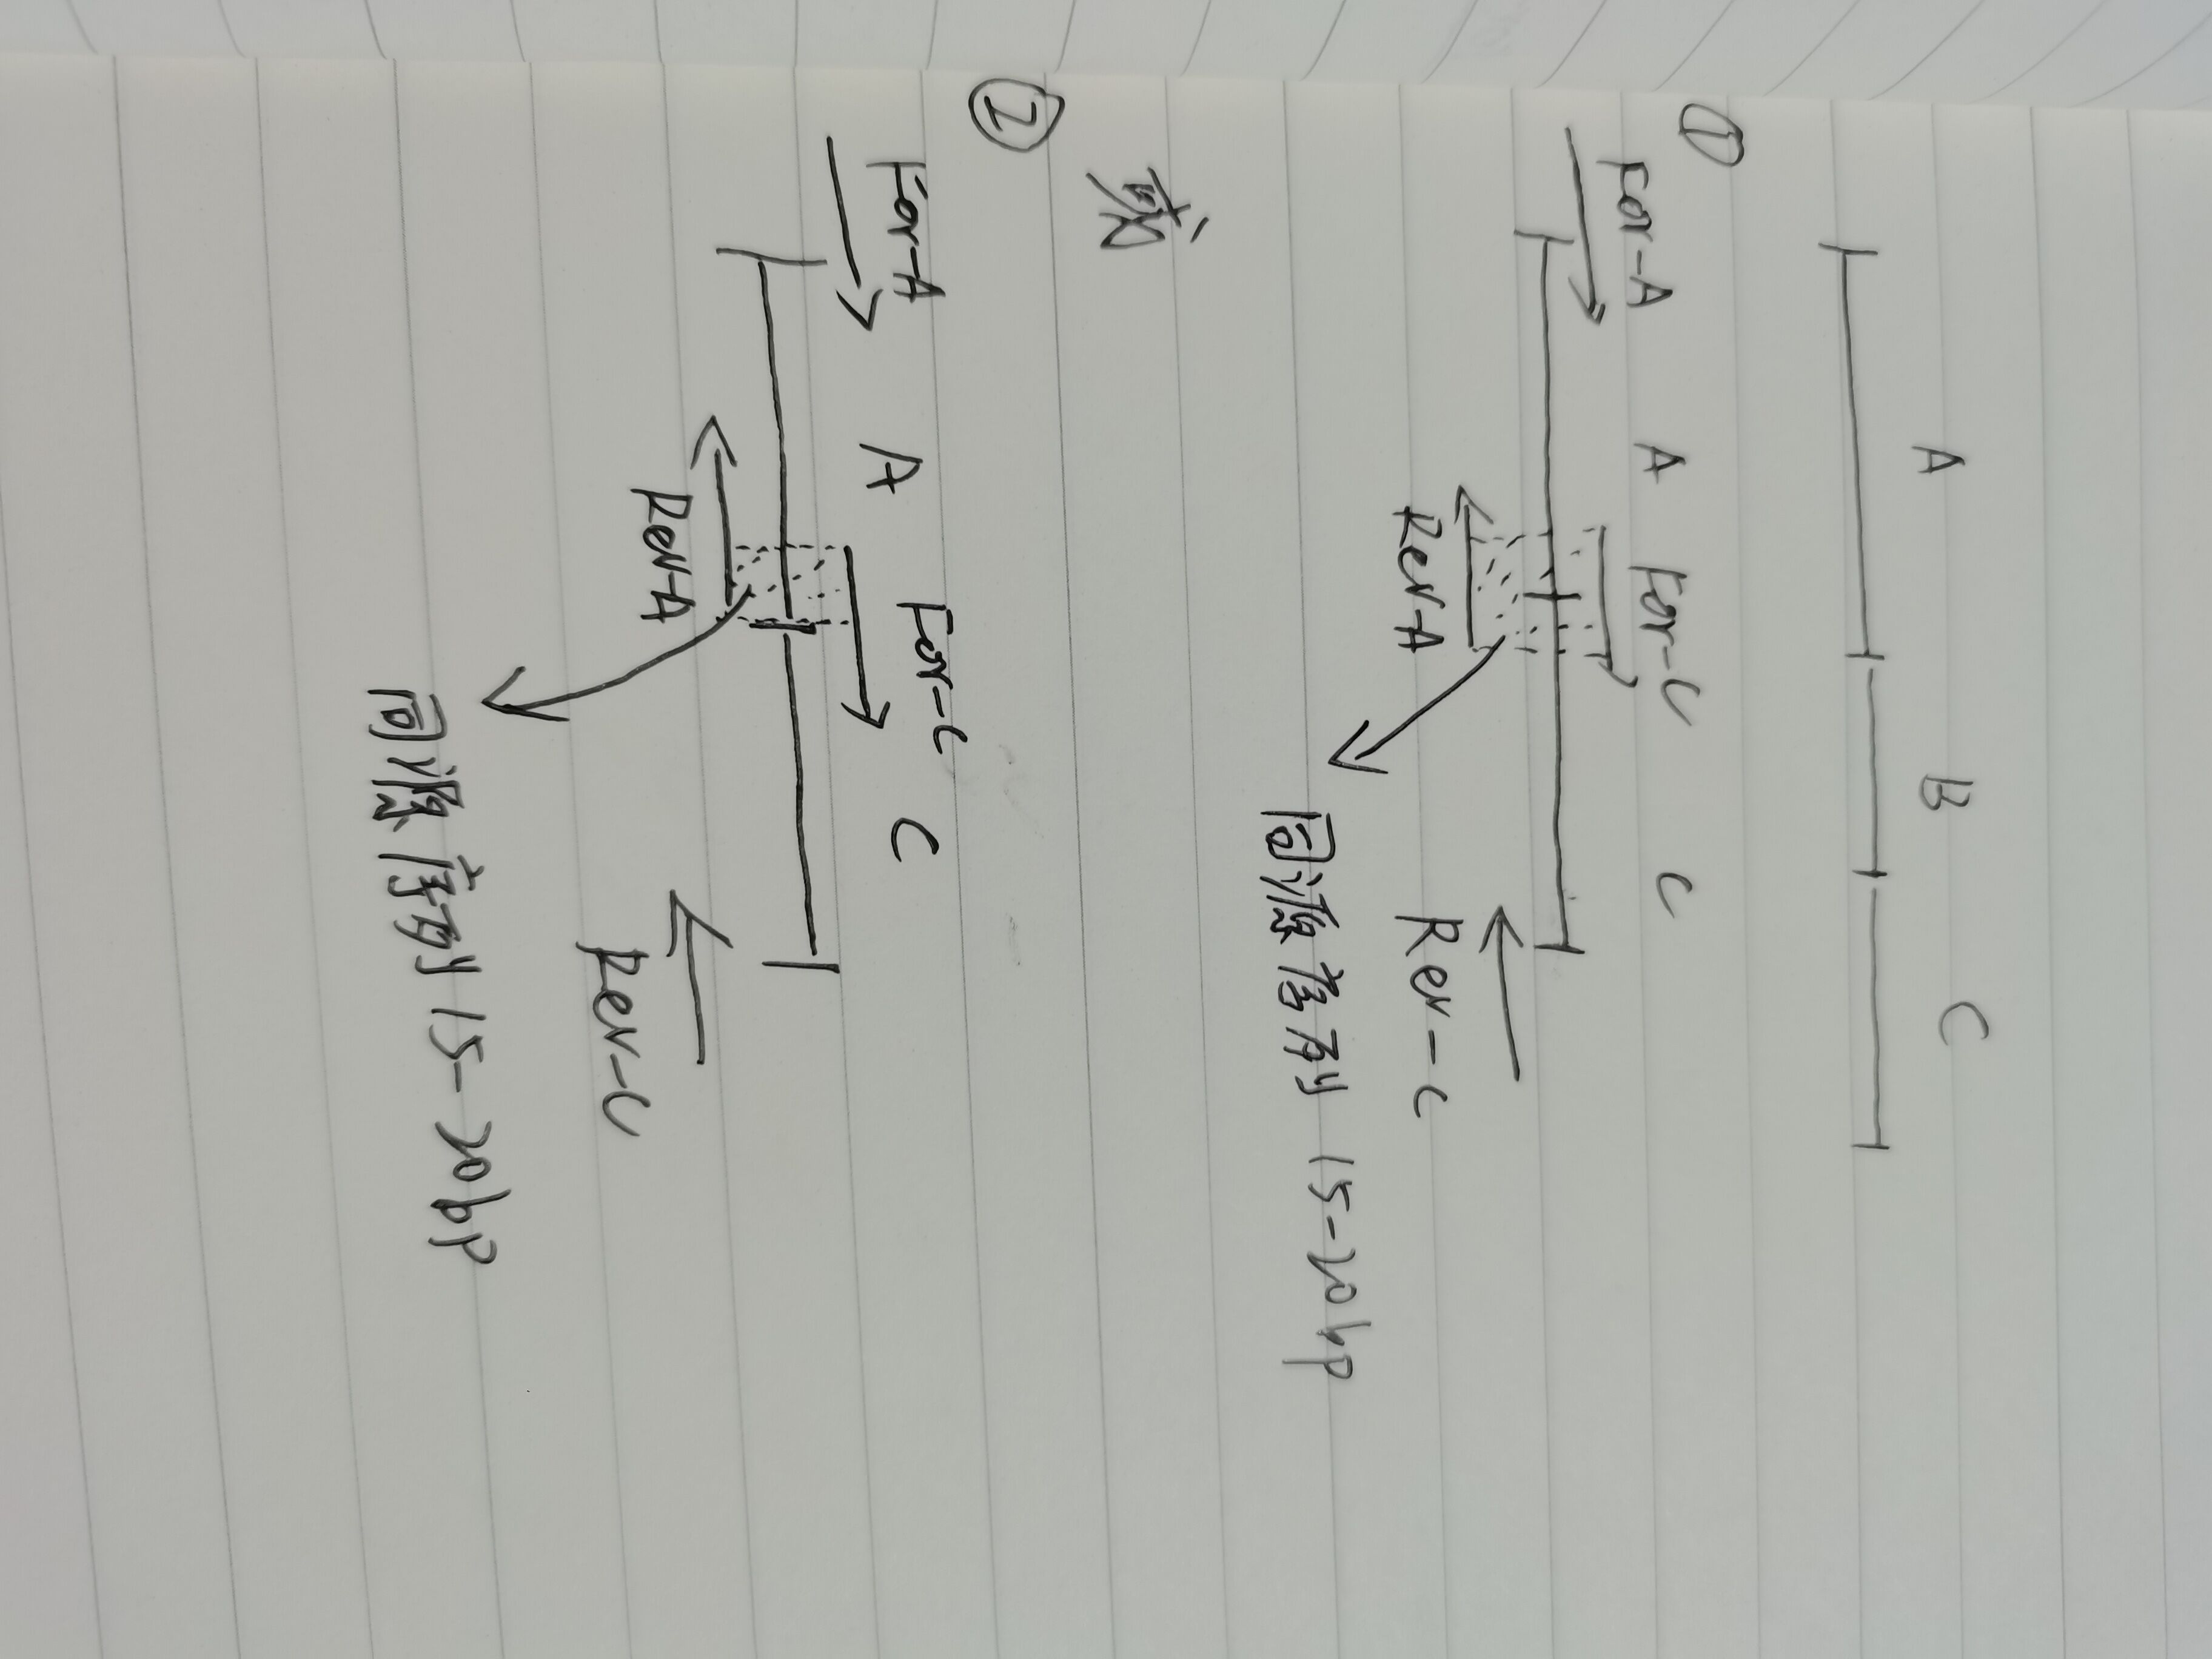 A B C
①
For-A A For-C C
Rev-A Rev-C
同源序列 15-20bp
或
②
For-A A For-C C
Rev-A Rev-C
同源序列 15-20bp